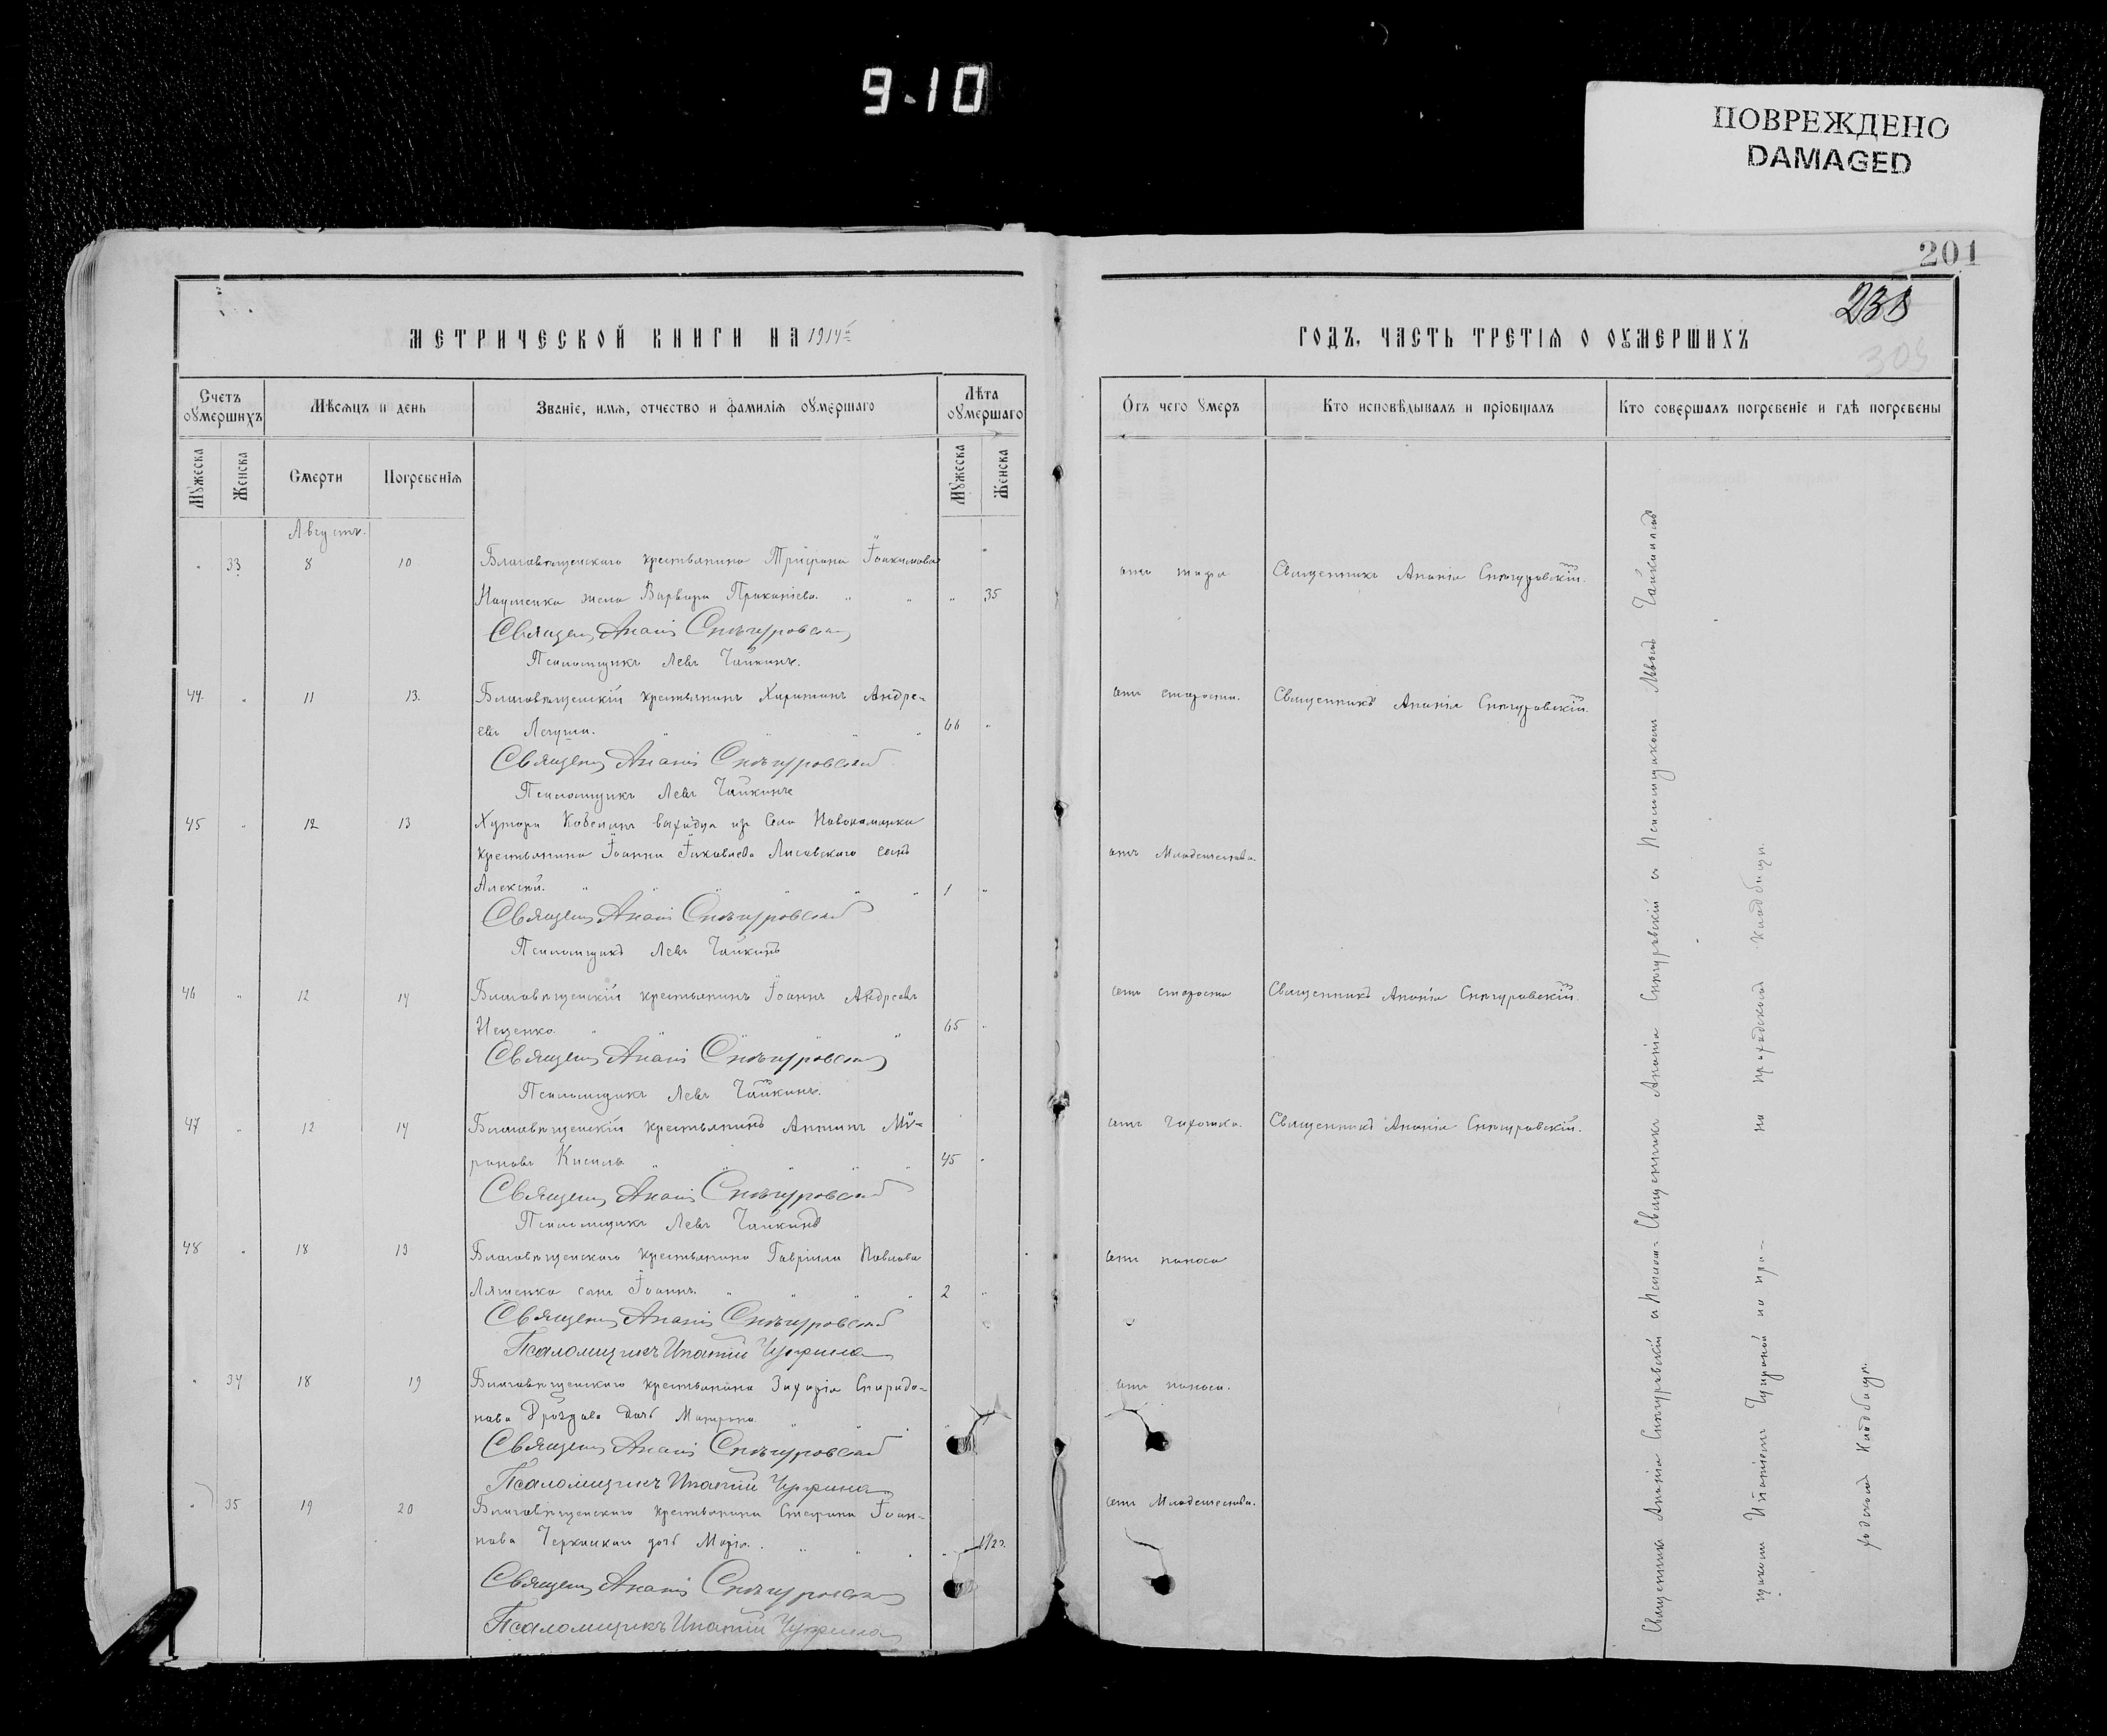 9.10
ПОВРЕЖДЕНО
DAMAGED
201
238
303
МЕТРИЧЕСКОЙ КНИГИ НА 1914 г
ГОДЪ, ЧАСТЬ ТРЕТІЯ О ОУМЕРШИХЪ
Счетъ оумершихъ
Мѣсяцъ и день
Званіе, имя, отчество и фамилія оумершаго
Лѣта оумершаго
Отъ чего умеръ
Кто исповѣдывалъ и пріобщалъ
Кто совершалъ погребеніе и гдѣ погребены
Мужеска
Женска
Смерти
Погребенія
Мужеска
Женска
Августъ.
33 8 10 Благовѣщенскаго крестьянина Трифона Іоакимова
отъ Священникъ Ананія Снѣгуровскій.
жена Варвара Прокопіева. 35
Священ Ананія Снѣгуровскій
Псаломщикъ Левъ Чайкинъ.
44 11 13. Благовѣщенскій крестьянинъ Харитонъ Андре-
отъ старости. Священникъ Ананія Снѣгуровскій.
евъ 66
Священ Ананія Снѣгуровскій
Псаломщикъ Левъ Чайкинъ
45 12 13 Хутора выходца изъ села Новокаменка
крестьянина Іоанна Яковлева Лисовскаго сынъ
отъ младенчества.
Алексѣй. 1
Священ Ананія Снѣгуровскій
Псаломщикъ Левъ Чайкинъ
46 12 14 Благовѣщенскій крестьянинъ Іоаннъ Андреевъ
отъ старости Священникъ Ананія Снѣгуровскій.
65
Священ Ананія Снѣгуровскій
Псаломщикъ Левъ Чайкинъ.
47 12 14 Благовѣщенскій крестьянинъ Антонъ Ми-
отъ чахотки. Священникъ Ананія Снѣгуровскій.
роновъ Кисиль 45
Священ Ананія Снѣгуровскій
Псаломщикъ Левъ Чайкинъ
48 18 19 Благовѣщенскаго крестьянина Гавріила Павлова
отъ поноса
Ляшенка сынъ Іоаннъ. 2
Священ Ананія Снѣгуровскій
Псаломщикъ Ипатій
34 18 19 Благовѣщенскаго крестьянина Захарія Спиридо-
отъ поноса.
нова Дроздова дочь Матрона.
Священ Ананія Снѣгуровскій
Псаломщикъ Ипатій
35 19 20 Благовѣщенскаго крестьянина Стефана Іоан-
отъ младенчества.
нова дочь Марія. 1/2 г.
Священ Ананія Снѣгуровскій
Псаломщикъ Ипатій
Священникъ Ананія Снѣгуровскій и Псалом- Священникъ Ананія Снѣгуровскій съ Псаломщикомъ Львомъ Чайкинымъ
щикомъ Ипатіемъ на при- на приходскомъ кладбищѣ.
ходскомъ кладбищѣ.